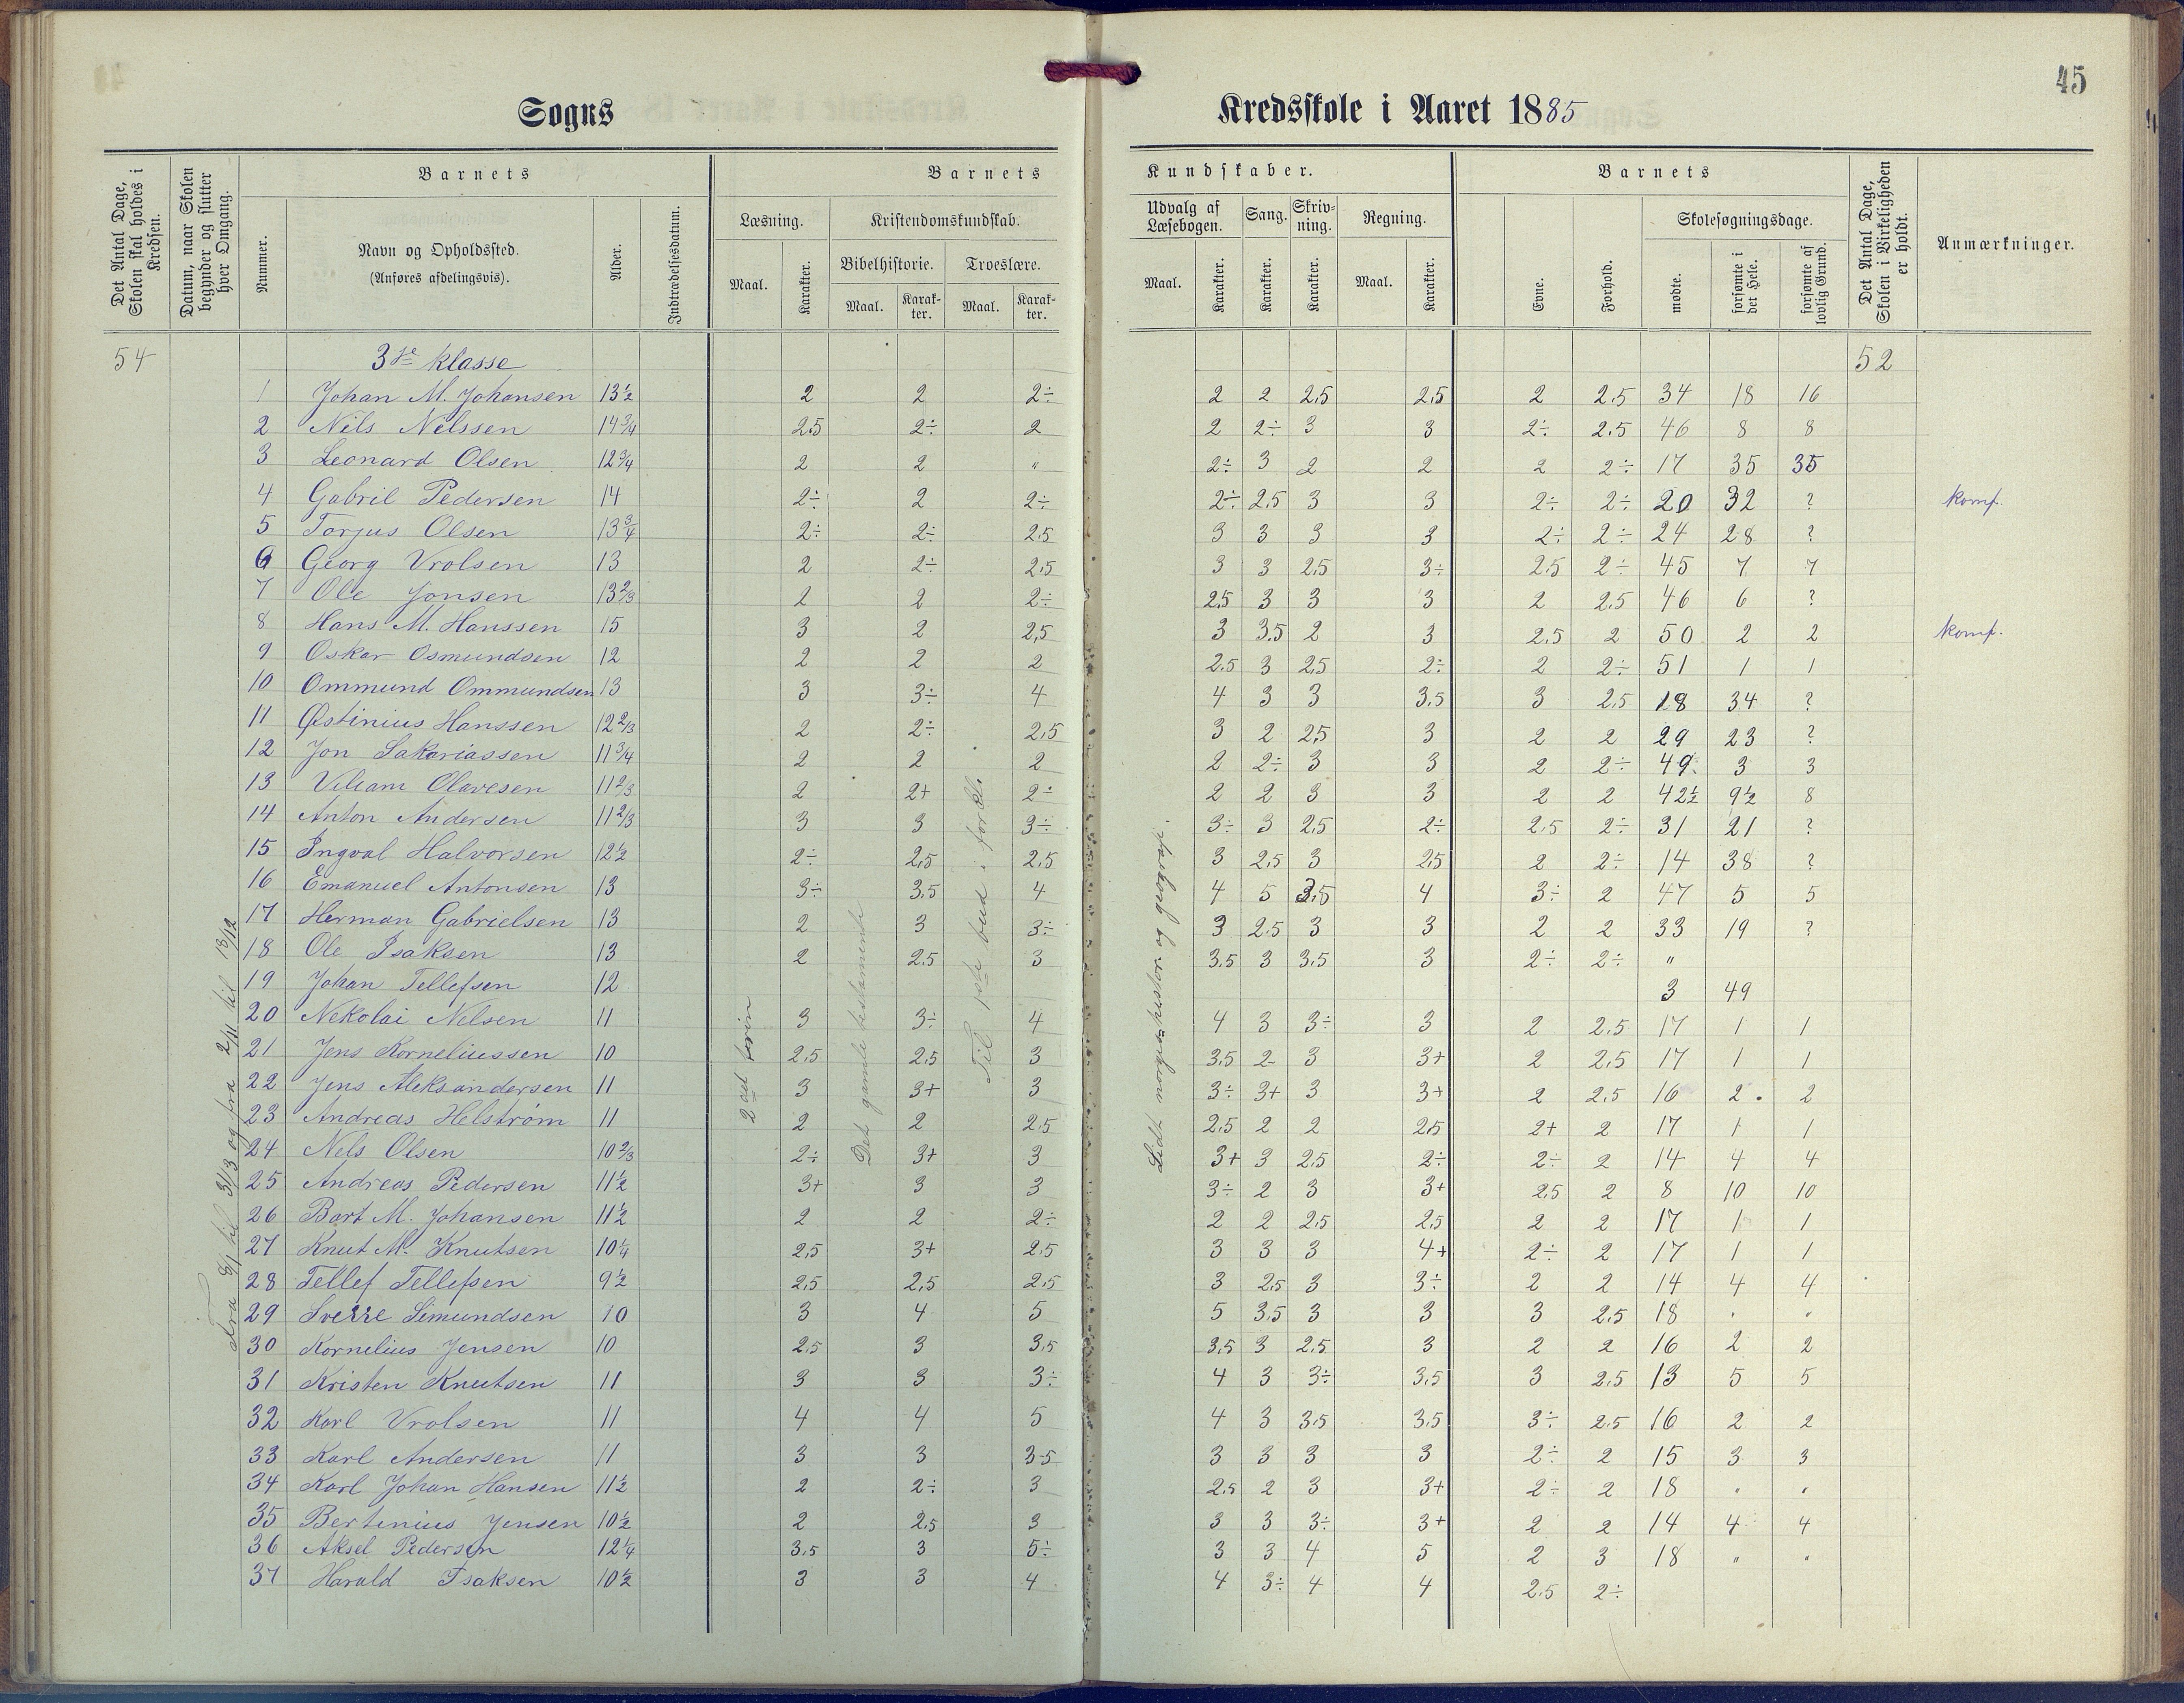 45
Sogns Kredsskole i Aaret 1885
Det Antal Dage, Skolen skal holdes i Kredsen.
Datum, naar Skolen begynder og slutter hver Omgang.
Barnets
Nummer.
Navn og Opholdssted.
(Anføres afdelingsvis).
Alder.
Indtrædelsesdatum.
Barnets Kundskaber.
Læsning.
Maal.
Karakter.
Kristendomskundskab.
Bibelhistorie.
Maal.
Karakter.
Troeslære.
Maal.
Karakter.
Udvalg af Læsebogen.
Maal.
Karakter.
Sang.
Karakter.
Skrivning.
Karakter.
Regning.
Maal.
Karakter.
Barnets
Evne.
Forhold.
Skolesøgningsdage.
mødte.
forsømte i det Hele.
forsømte af lovlig Grund.
Det Antal Dage, Skolen i Virkeligheden er holdt.
Anmærkninger.
54 3die klasse 52
1 Johan M. Johansen 13½ 2 2 2÷ 2 2 2,5 2,5 2 2,5 34 18 16
2 Nils Nilssen 14¾ 2,5 2÷ 2 2 2÷ 3 3 2÷ 2,5 46 8 8
3 Leonard Olsen 12¾ 2 2 " 2÷ 3 2 2 2 2÷ 17 35 35
4 Gabril Pedersen 14 2÷ 2 2÷ 2÷ 2,5 3 3 2÷ 2÷ 20 32 ? komf.
5 Torjus Olsen 13¾ 2÷ 2÷ 2,5 3 3 3 3 2÷ 2÷ 24 28 ?
6 Georg Vrolsen 13 2 2÷ 2,5 3 3 2,5 3÷ 2,5 2÷ 45 7 7
7 Ole Jonsen 13⅔ 2 2 2÷ 2,5 3 3 3 2 2,5 46 6 ?
8 Hans M. Hanssen 15 3 2 2,5 3 3,5 2 3 2,5 2 50 2 2 komf.
9 Oskar Osmundsen 12 2 2 2 2,5 3 2,5 2÷ 2 2÷ 51 1 1
10 Ommund Ommundsen 13 3 3÷ 4 4 3 3 3,5 3 2,5 18 34 ?
11 Østinius Hanssen 12⅔ 2 2÷ 2,5 3 2 2,5 3 2 2 29 23 ?
12 Jon Sakariassen 11¾ 2 2 2 2 2÷ 3 3 2 2÷ 49 3 3
13 Viliam Olavesen 11⅔ 2 2+ 2÷ 2 2 3 3 2 2 42½ 9½ 8
14 Anton Andersen 11⅔ 3 3 3÷ 3÷ 3 2,5 2÷ 2,5 2÷ 31 21 ?
15 Ingval Halvorsen 12½ 2÷ 2,5 2,5 3 2,5 3 2,5 2 2÷ 14 38 ?
16 Emanuel Antonsen 13 3÷ 3,5 4 4 5 3,5 4 3÷ 2 47 5 5
17 Herman Gabrielsen 13 2 3 3÷ 3 2,5 3 3 2 2 33 19 ?
18 Ole Isaksen 13 2 2,5 3 3,5 3 3,5 3 2÷ 2÷ "
19 Johan Tellefsen 12 3 49
20 Nekolai Nelsen 11 3 3÷ 4 4 3 3÷ 3 2 2,5 17 1 1
21 Jens Korneliussen 10 2,5 2,5 3 3,5 2 3 3+ 2 2,5 17 1 1
22 Jens Aleksandersen 11 3 3+ 3 3÷ 3+ 3 3+ 2 2,5 16 2 2
23 Andreas Helstrøm 11 2 2 2,5 2,5 2 2 2,5 2+ 2 17 1 1
24 Nels Olsen 10⅔ 2÷ 3+ 3 3+ 3 2,5 2÷ 2÷ 2 14 4 4
25 Andreas Pedersen 11½ 3+ 3 3 3÷ 2 3 3+ 2,5 2 8 10 10
26 Bart M. Johansen 11½ 2 2 2÷ 2 2 2,5 2,5 2 2 17 1 1
27 Knut M. Knutsen 10¼ 2,5 3+ 2,5 3 3 3 4+ 2÷ 2 17 1 1
28 Tellef Tellefsen 9½ 2,5 2,5 2,5 3 2,5 3 3÷ 2 2 14 4 4
29 Sverre Simundsen 10 3 4 5 5 3,5 3 3 3 2,5 18 " "
30 Kornelius Jensen 10 2,5 3 3,5 3,5 3 2,5 3 2 2 16 2 2
31 Kristen Knutsen 11 3 3 3÷ 4 3 3÷ 3,5 3 2,5 13 5 5
32 Karl Vrolsen 11 4 4 5 4 3 3,5 3,5 3÷ 2,5 16 2 2
33 Karl Andersen 11 3 3 3,5 3 3 3 3 2÷ 2 15 3 3
34 Karl Johan Hansen 11½ 2 2÷ 3 2,5 2 3 3+ 2÷ 2 18 " "
35 Bertinius Jensen 10½ 2 2,5 3 3 3 3÷ 3+ 2 2 14 4 4
36 Aksel Pedersen 12¼ 3,5 3 5÷ 3 3 4 5 2 3 18 " "
37 Harald Isaksen 10½ 3 3 4 4 3÷ 4 4 2,5 2÷
til 31/3 og fra 2/11 til 18/12
2det
Det gamle testamente
Til 1ste bud i forkl.
Lidt norgeshistor. og geografi.